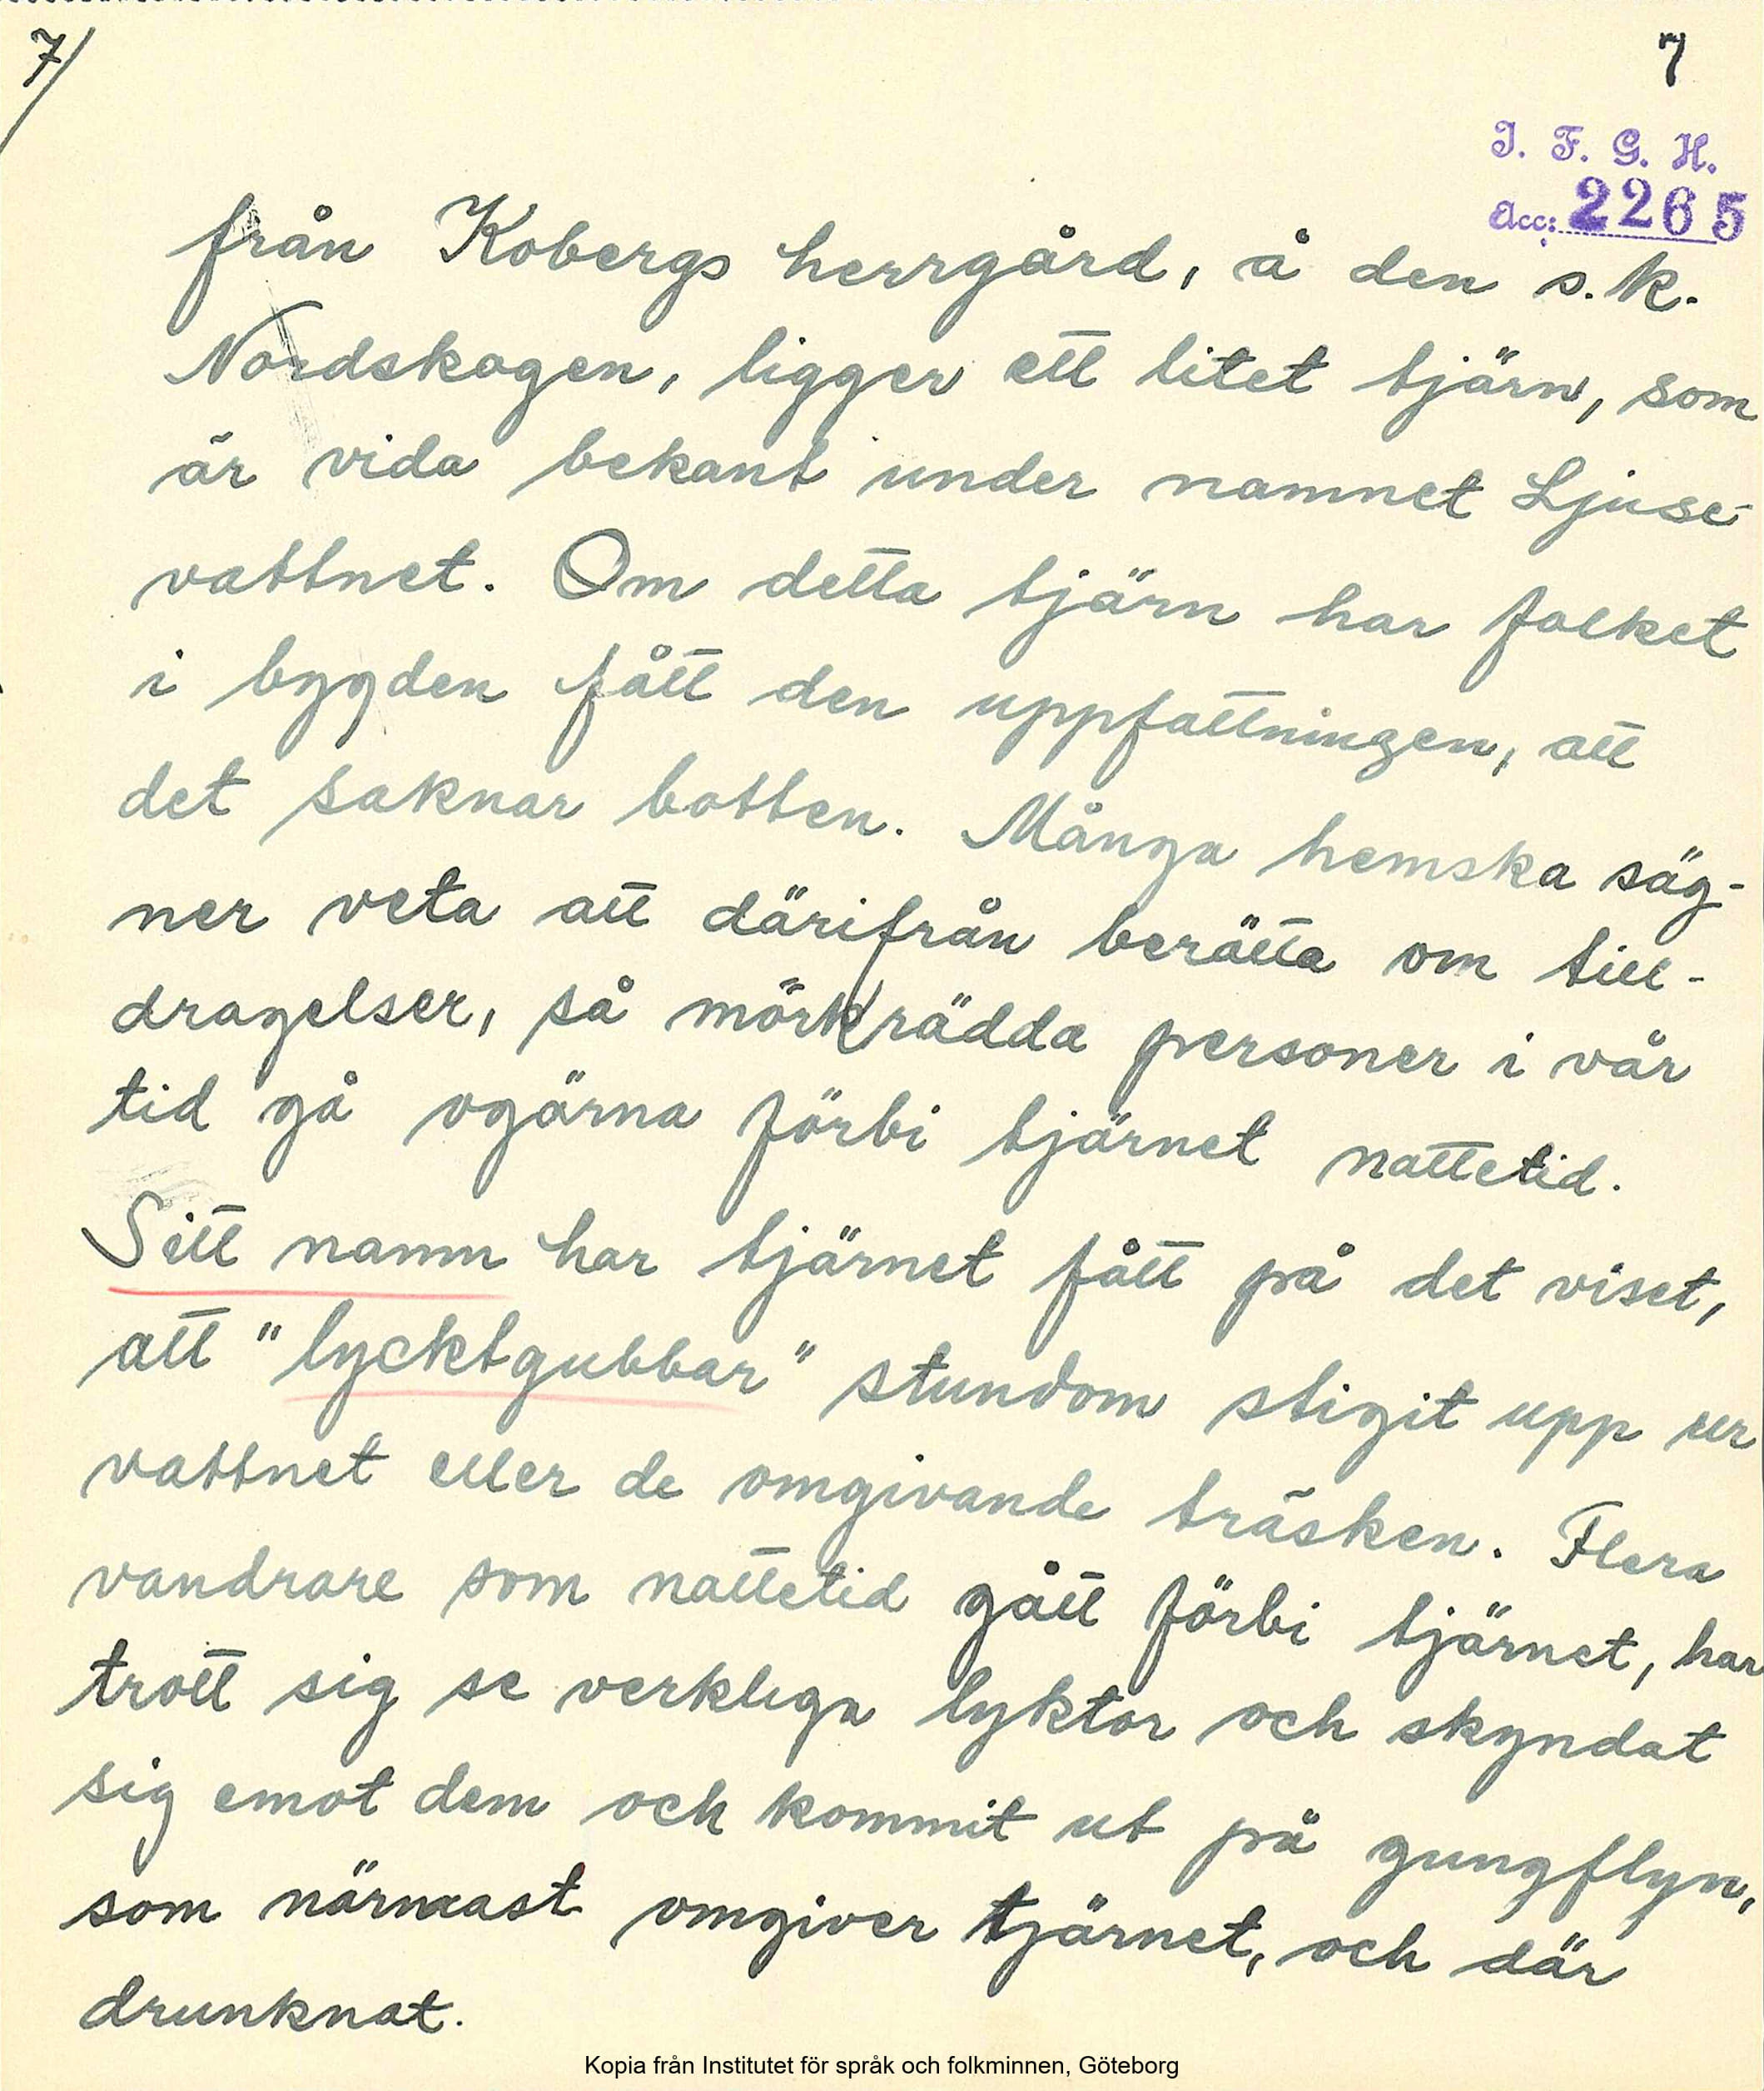 7/
7
I. F. G. H.
Acc: 2265
från Kobergs herrgård, å den s.k.
Nordskogen, ligger ett litet tjärn, som
är vida bekant under namnet Ljuse-
vattnet. Om detta tjärn har folket
i bygden fått den uppfattningen, att
det saknar botten. Många hemska säg-
ner veta att därifrån berätta om till-
dragelser, så mörkrädda personer i vår
tid gå ogärna förbi tjärnet nattetid.
Sitt namn har tjärnet fått på det viset,
att "lycktgubbar" stundom stigit upp ur
vattnet eller de omgivande träsken. Flera
vandrare som nattetid gått förbi tjärnet, har
trott sig se verkliga lyktor och skyndat
sig emot dem och kommit ut på gungflyn,
som närmast omgiver tjärnet, och där
drunknat.
Kopia från Institutet för språk och folkminnen, Göteborg